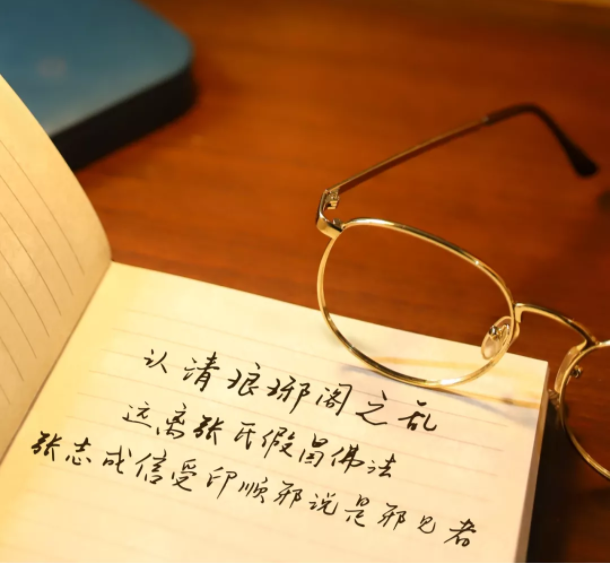 认清琅琊阁之乱
远离张氏假冒佛法
张志成信受印顺邪说是邪见者